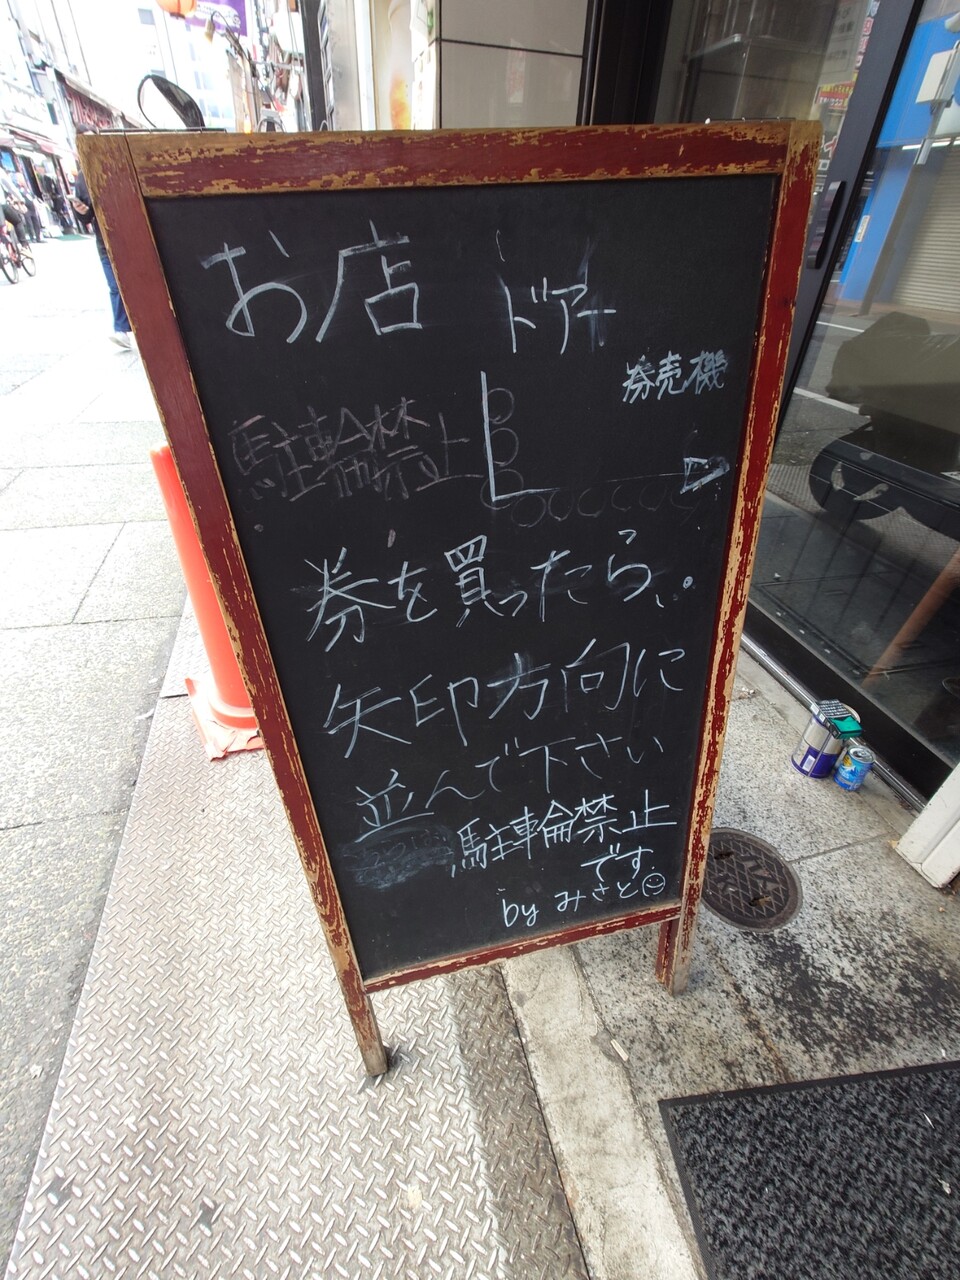 お店
ドアー
券売機
駐輪禁止
券を買ったら、
矢印方向に
並んで下さい
駐車輪禁止
です
by みさと